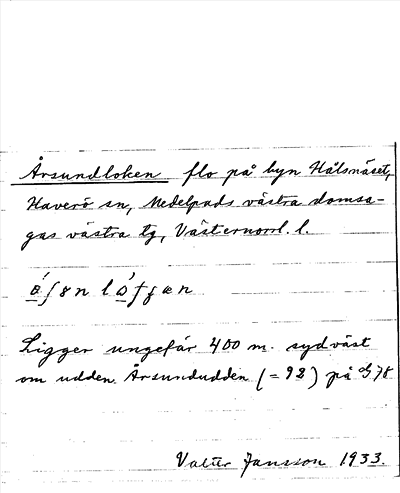 Årsundloken flo på byn Hålsnäset,
Haverö sn, Medelpads västra domsa-
gas västra tg, Västernorrl. l.
Ligger ungefär 400 m. sydväst
om udden Årsundudden (= 92) på G78
Valter Jansson 1933.